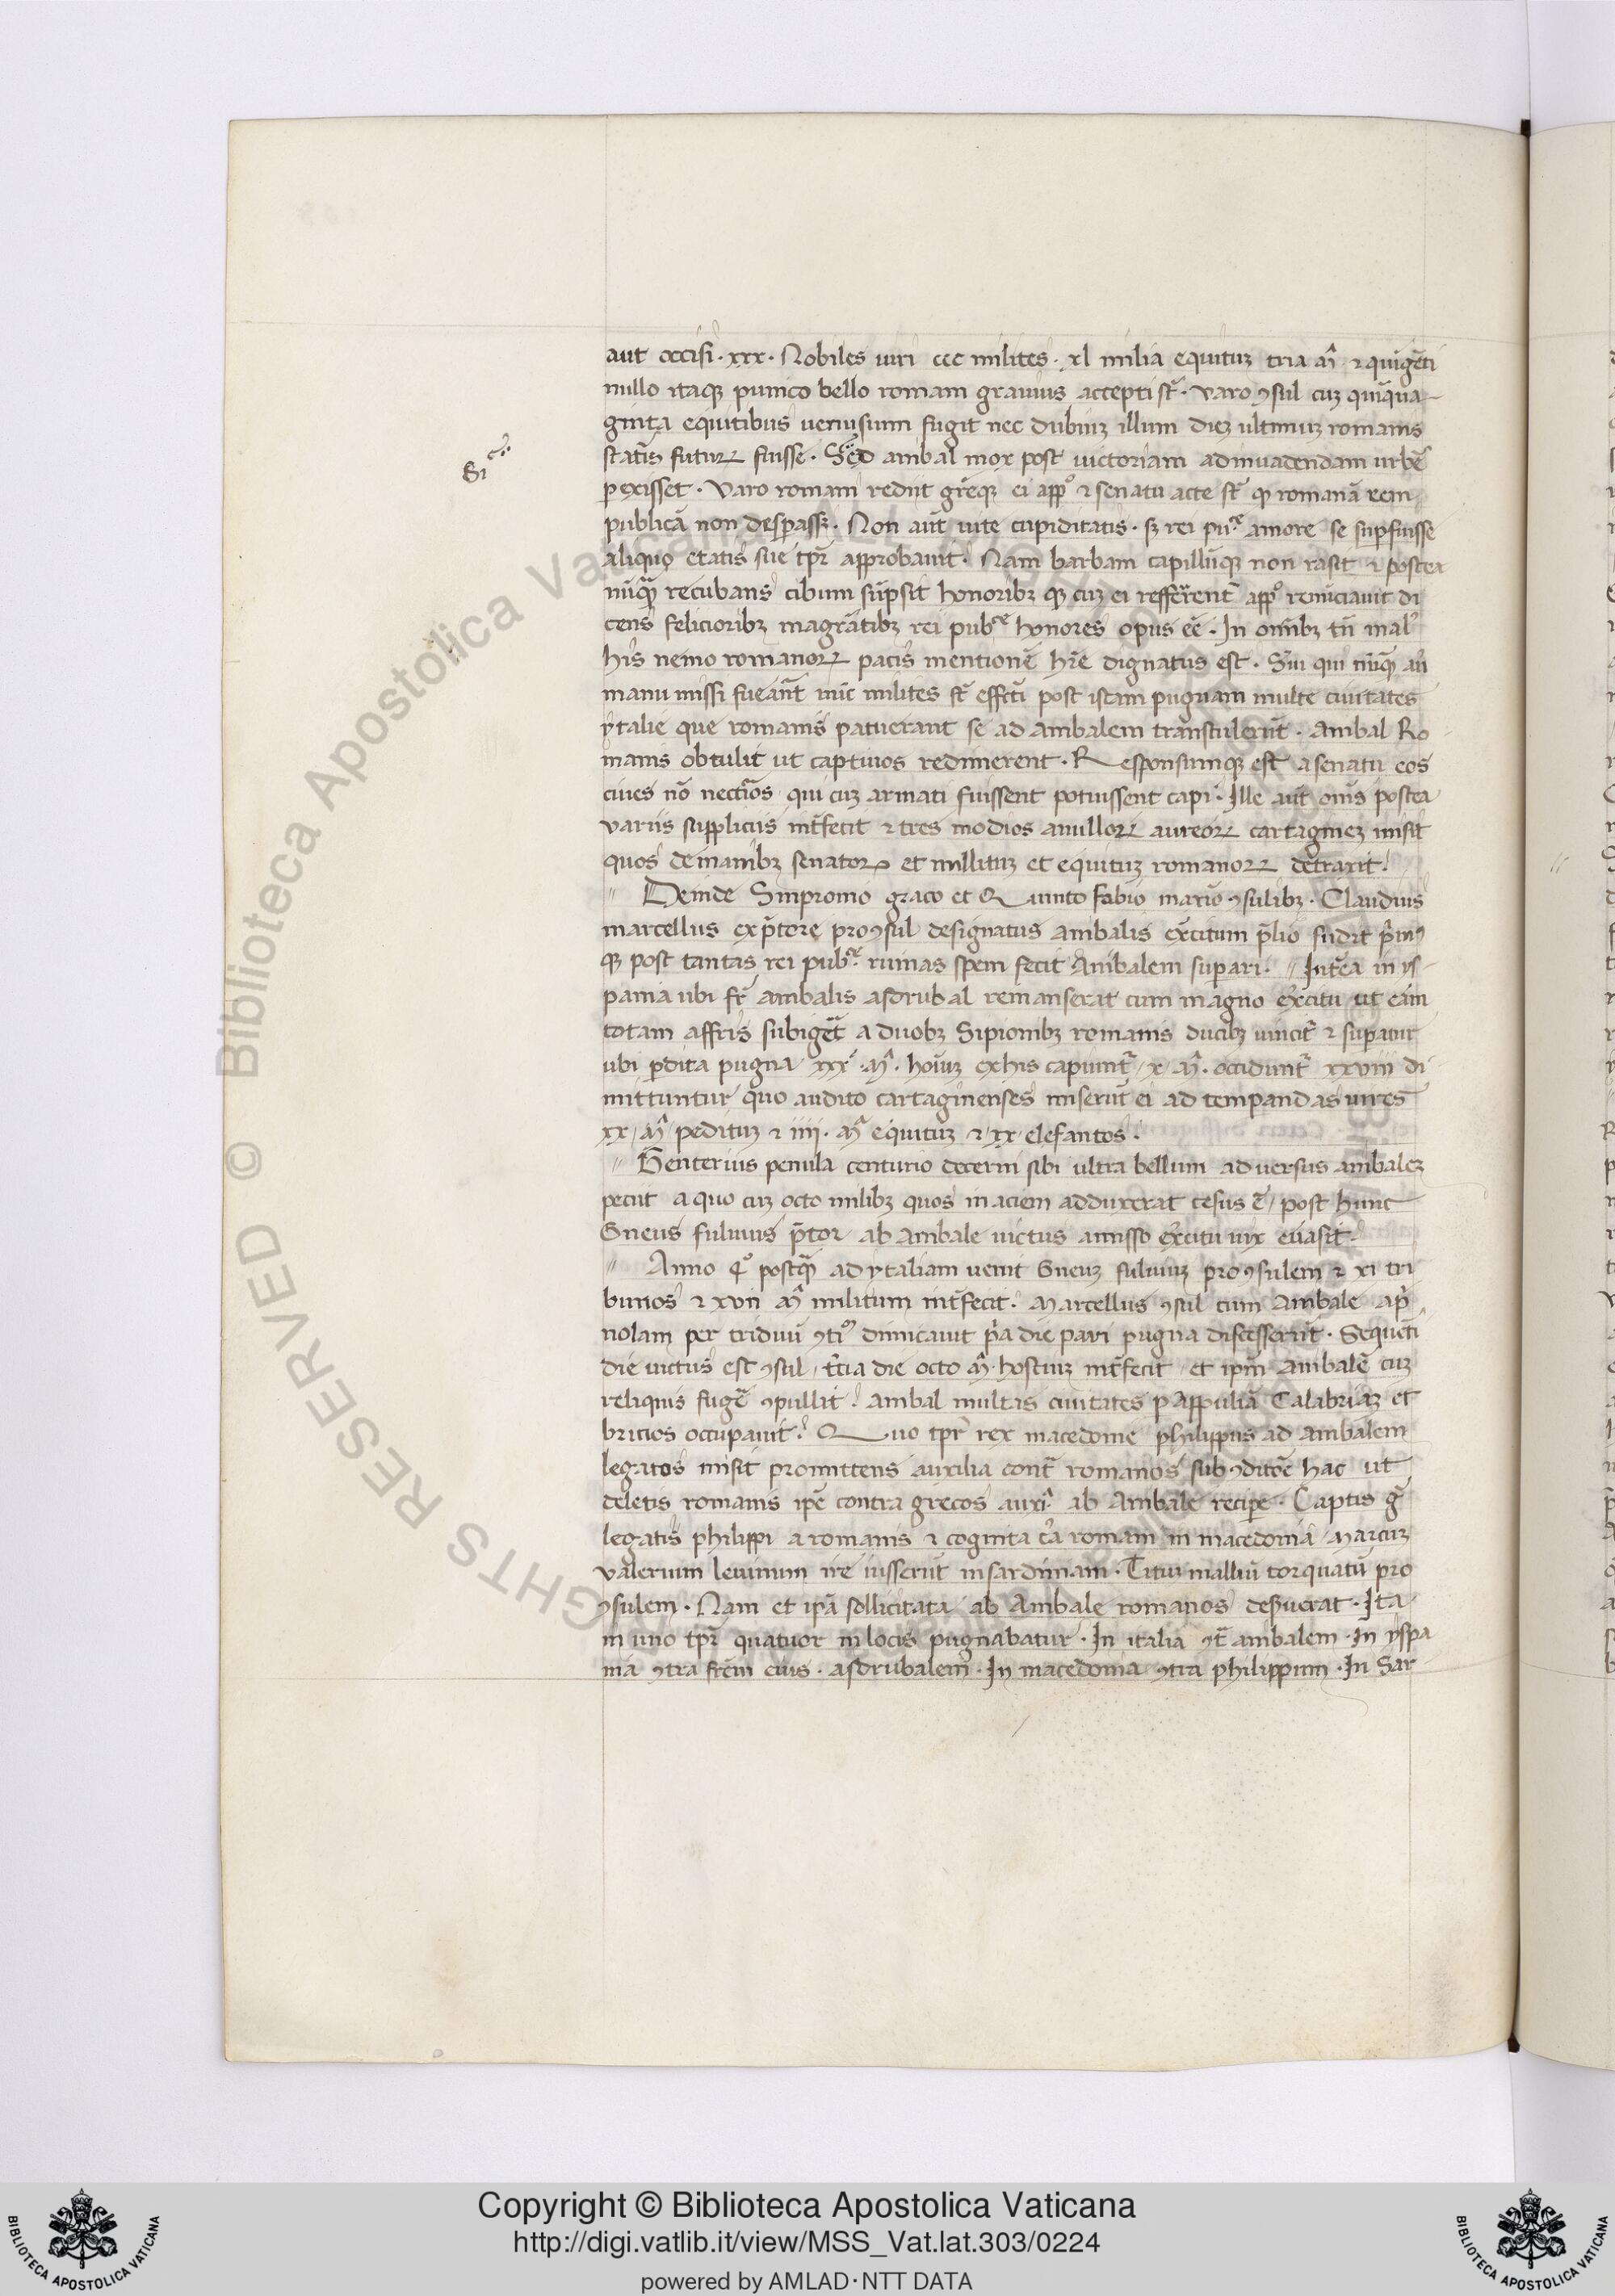 aut occisi · xxx · Nobiles uiri ccc milites · xl milia equituꝫ tria m̄ ⁊ quīgēti
nullo itaqꝫ punico bello romani grauius accepti sͭ · Varo ꝯsul cuꝫ quīqua-
ginta equitibus uenusium fugit nec dubiuꝫ illum dieꝫ ultimuꝫ romanis
Si
status futuꝝ fuisse · Sed anibal mox post uictoriam ad inuadendam urbē
pexisset · Varo romam rediit grēqꝫ ei app̊ ⁊ senatu acte sͭ qꝫ romanā rem
publicā non despassꝫ · Non aūt uite cupiditatis · sꝫ rei puᶜᵉ amore se supfuisse
aliquo etatis sue tpr̄ approbauit · Nam barbam capillūqꝫ non rasit ⁊ postea
nūqꝫ recubans cibum sūpsit honoribꝫ qꝫ cuꝫ ei reffērrent app̊ renūciauit di
cens felicioribꝫ magrātibꝫ rei pubᶜᵉ honores opus eē · In omībꝫ tn̄ mal
his nemo romanoꝝ pacis mentionē hr̄e dignatus est · Sui qui nūqꝫ an
manu missi fueānt nūc milites sͭ effcti post istam pugnam multe ciuitates
ytalie que romanis patuerant se ad anibalem transtulerūt · anibal Ro
manis obtulit ut captiuos redimerent · Responsumqꝫ est a senatu eos
ciues nō nectīos qui cuꝫ armati fuissent potuissent capi · Ille aūt oms postea
variis suppliciis intfecit ⁊ tres modios anulloꝝ aureoꝝ cartagineꝫ misit
quos de manibꝫ senatoꝝ et militūꝫ et equituꝫ romanoꝝ detraxit
" Deinde Sinpronio graco et Quinto fabio maxīo ꝯsulibꝫ · Claudius
marcellus ex p̄tore proꝯsul designatus anibalis exͨcitum p̄lio fudit p̄mꝰ
qꝫ post tantas rei pubᶜᵉ ruinas spem fecit Anibalem supari · " Intēa in ys-
pania ubi fr̄ anibalis asdrubal remanserat cum magno exͨcitu ut eam
totam affris subigēt a duobꝫ Sipionibꝫ romanis ducibꝫ uincit ⁊ supatur
ubi pdita pugna xxxᵃ · m̄ · hoīuꝫ ex his capiuntͬ x m̄ · occiduntͬ xxviii di
mittuntur quo audito cartaginenses miserūt ei ad tempandas uires
xx m̄ peditūꝫ ⁊ iiii · m̄ equitūꝫ ⁊ xx elefantos ·
" Genterius penula centurio decerni sibi ultra bellum aduersus anibaleꝫ
petiit a quo cuꝫ octo milibꝫ quos in aciem adduxerat cesus ē post hunc
Gneus fuluius p̄tor ab anibale uictus amisso exͨcitu uix euasit
" Anno 4º postqꝫ ad ytaliam uenit Gneuꝫ fuluiuꝫ proꝯsulem ⁊ xi tri
bunos ⁊ xvii m̄ militum intfecit · Marcellus ꝯsul cum Anibale ap̄
nolam per triduū ꝯtiº dimicauit p̄a die pari pugna discesserūt · Sequēti
die uictus est ꝯsul t̄tia die octo m̄ · hostiuꝫ intfecit et ipm̄ anibalē cuꝫ
reliquis fugē ꝯpullit · anibal multas ciuitates p Appuliā Calabriaꝫ et
bricios occupauit · Quo tpr̄ rex macedonie philippus ad anibalem
legatos misit promittens auxilia contͣ romanos sub ꝯditōe hac ut
deletis romanis ipē contra grecos auxiᵃ ab Anibale recipe · Captis gͦ
legatis philippi a romanis ⁊ cognita cā romani in macedoniā Marcuꝫ
valerium leuinum ire iusserūt in sardiniam · Tituꝫ malliū torquatū pro
ꝯsulem · Nam et ipā sollicitata ab Anibale romanos deseruerat · Ita
in uno tpr̄ quatuor in locis pugnabatur · In italia ꝯtͣ anibalem · In yspa
nia ꝯtra frēm eius · asdrubalem · In macedonia ꝯtra philippum · In Sar
Copyright © Biblioteca Apostolica Vaticana
http://digi.vatlib.it/view/MSS_Vat.lat.303/0224
powered by AMLAD·NTT DATA